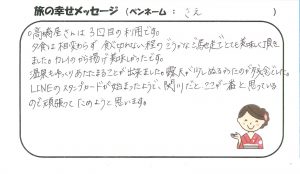 旅の幸せメッセージ (ペンネーム: さえ )
高崎屋さんは3回目の利用です。
夕食は相変わらず食べ切れない程のごうかなご馳走でとても美味しく頂き
ました。カレイのから揚げ美味しかったです。
温泉もゆっくりあたたまることが出来ました。露天がツルぬるかったのが残念でした。
LINEのスタンプカードが始まったようで、関川だとココが一番と思っている
ので頑張ってためようと思います。